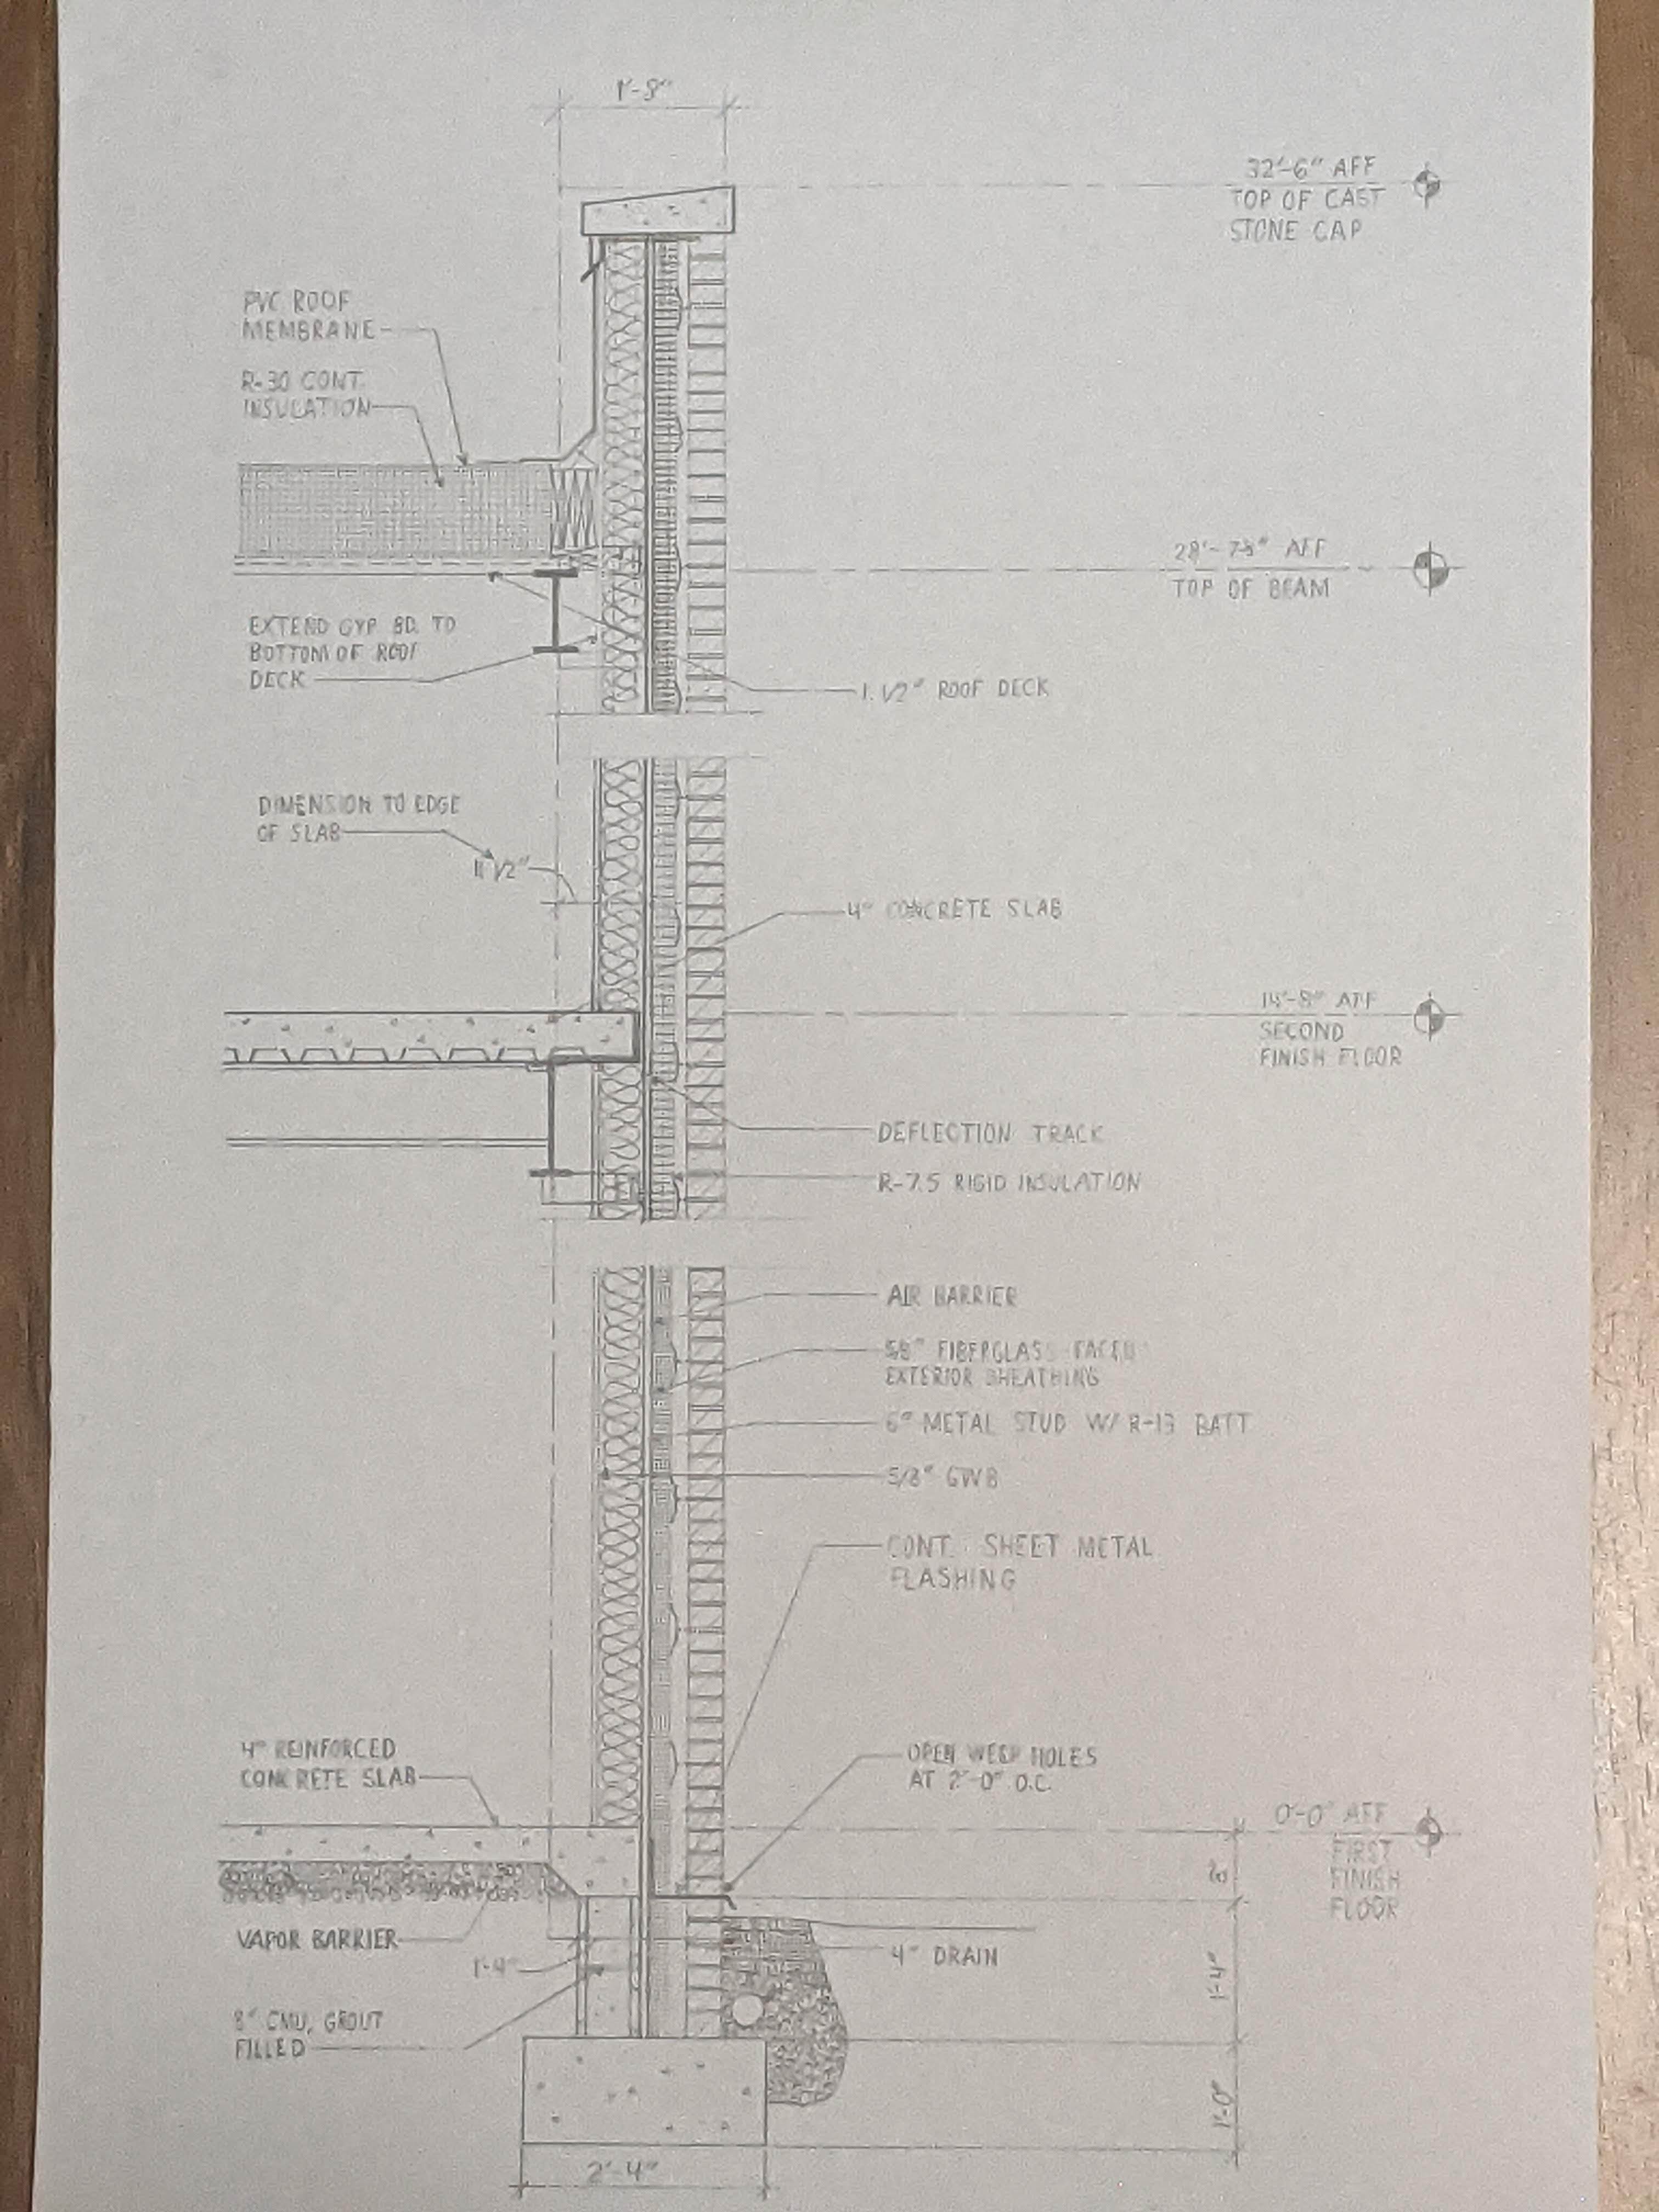 1'-8"
32'-6" AFF
TOP OF CAST
STONE CAP
PVC ROOF
MEMBRANE
R-30 CONT.
INSULATION
AFF
TOP OF BEAM
EXTEND GYP. BD. TO
BOTTOM OF ROOF
DECK
1 1/2" ROOF DECK
DIMENSION TO EDGE
OF SLAB
11 1/2"
4" CONCRETE SLAB
14'-8" AFF
SECOND
FINISH FLOOR
DEFLECTION TRACK
R-7.5 RIGID INSULATION
AIR BARRIER
5/8" FIBERGLASS FACED
EXTERIOR SHEATHING
6" METAL STUD W/ R-13 BATT
5/8" GWB
CONT. SHEET METAL
FLASHING
4" REINFORCED
CONCRETE SLAB
OPEN WEEP HOLES
AT 2'-0" O.C.
0'-0" AFF
FIRST
FINISH
FLOOR
8"
VAPOR BARRIER
1'-4"
4" DRAIN
1'-4"
8" CMU, GROUT
FILLED
1'-0"
2'-4"